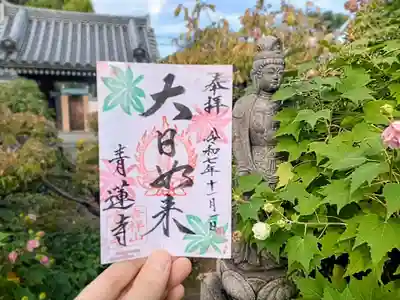 奉拝 令和七年十一月二日
大日如来
青蓮寺